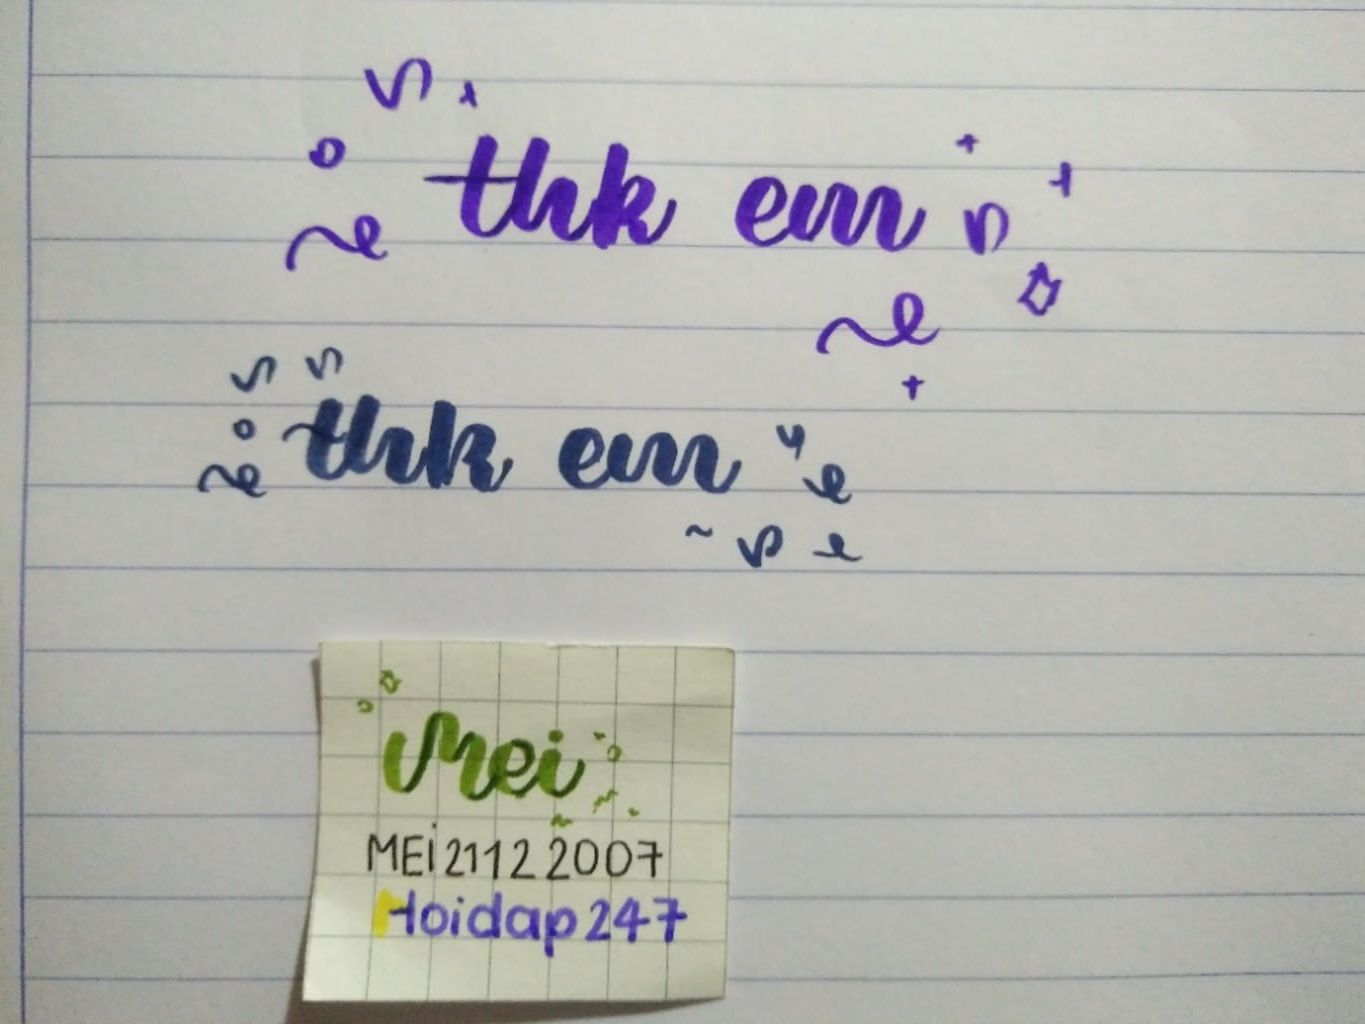 thk em
thk em
Mei
MEi21122007
Hoidap247